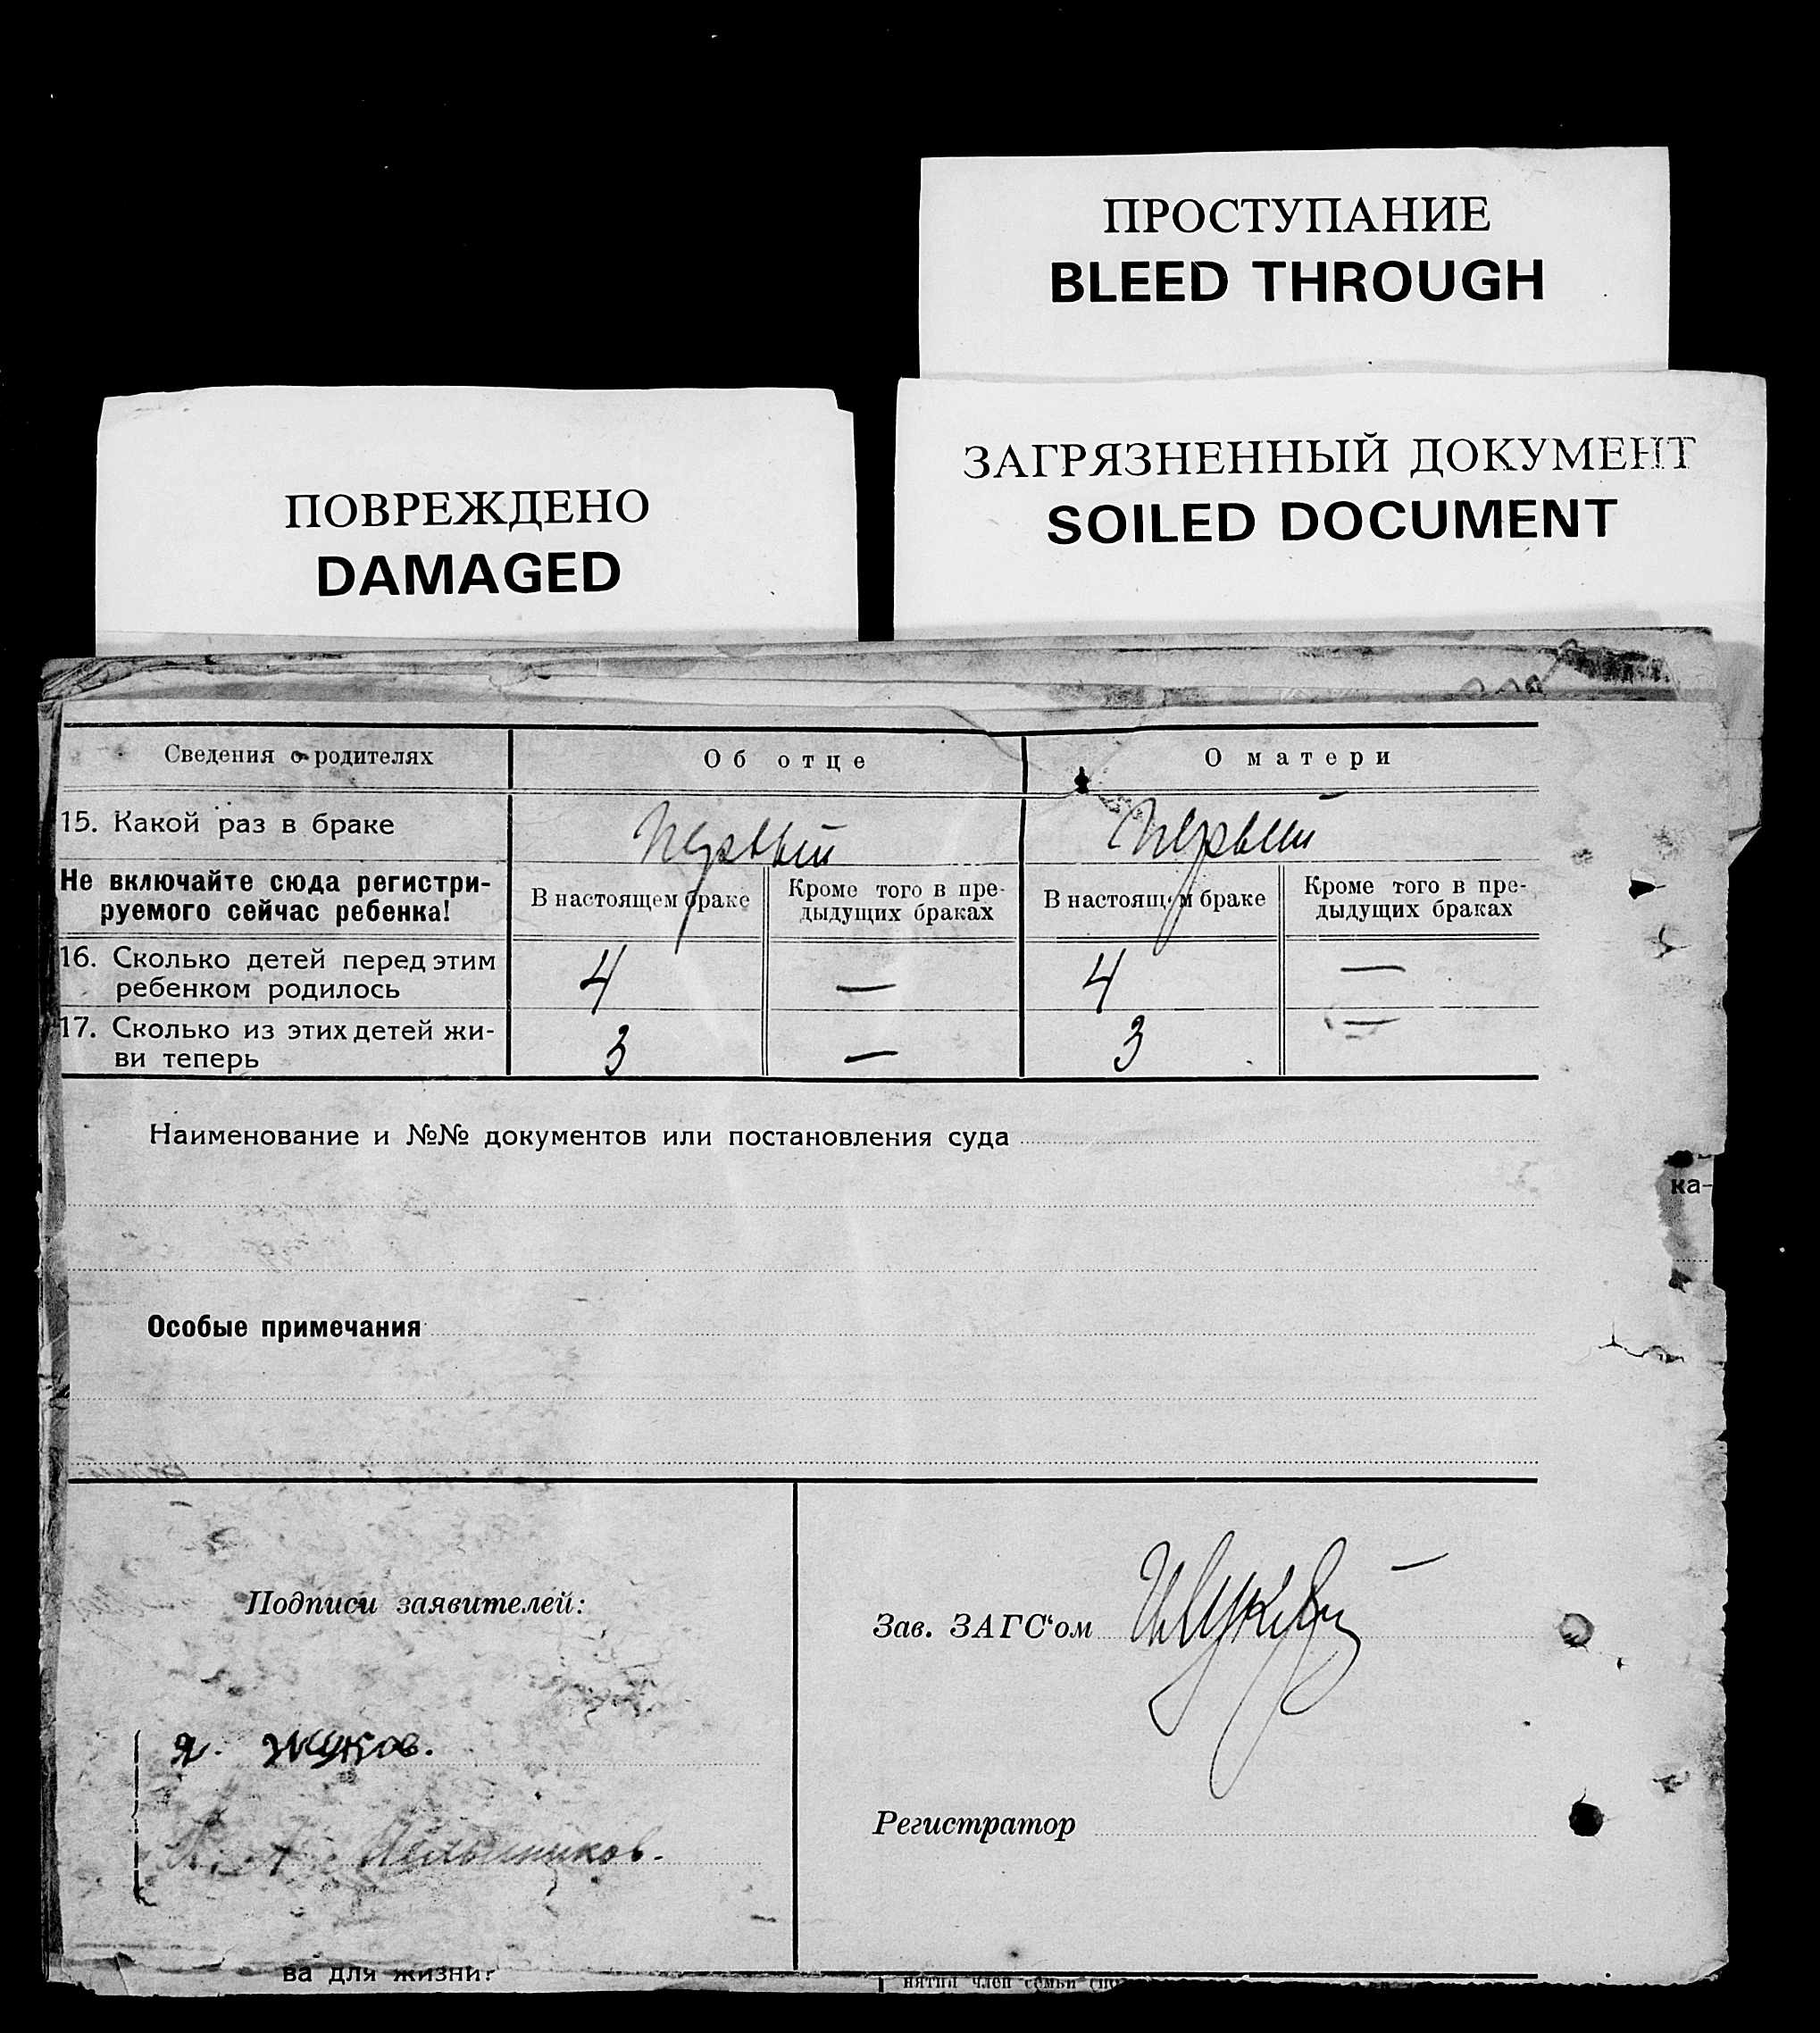 ПРОСТУПАНИЕ
BLEED THROUGH
ЗАГРЯЗНЕННЫЙ ДОКУМЕНТ
SOILED DOCUMENT
ПОВРЕЖДЕНО
DAMAGED
Сведения о родителях Об отце О матери
15. Какой раз в браке Первый Первый
Не включайте сюда регистри-
руемого сейчас ребенка!
В настоящем браке Кроме того в пре-
дыдущих браках
В настоящем браке Кроме того в пре-
дыдущих браках
16. Сколько детей перед этим
ребенком родилось 4 — 4 —
17. Сколько из этих детей жи-
ви теперь 3 — 3 —
Наименование и №№ документов или постановления суда
ка-
Особые примечания
Подписи заявителей:
Зав. ЗАГС‘ом
Я. Жуков.
Мельников.
Регистратор
ва для жизни?
нятия член семьи